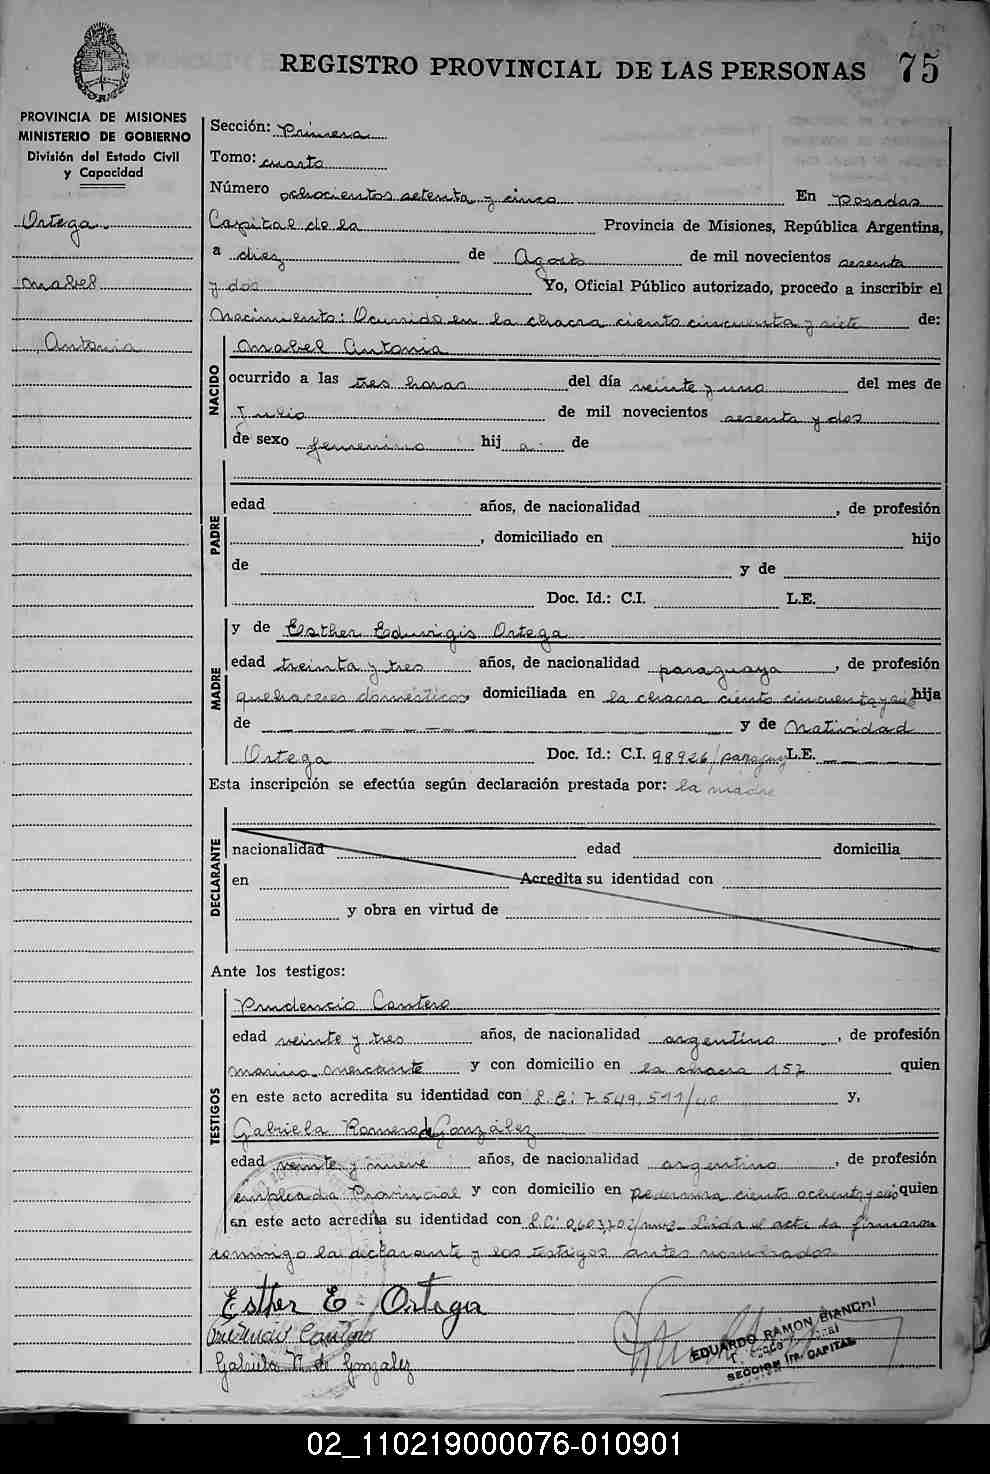 REGISTRO PROVINCIAL DE LAS PERSONAS 75
PROVINCIA DE MISIONES
MINISTERIO DE GOBIERNO
División del Estado Civil
y Capacidad
Ortega
Mabel
Antonia
Sección: Primera
Tomo: cuarto
Número ochocientos setenta y cinco En Posadas
Capital de la Provincia de Misiones, República Argentina,
a diez de Agosto de mil novecientos sesenta
y dos Yo, Oficial Público autorizado, procedo a inscribir el
Nacimiento: Ocurrido en la chacra ciento cincuenta y siete de:
NACIDO
Mabel Antonia
ocurrido a las tres horas del día veinte y uno del mes de
Julio de mil novecientos sesenta y dos
de sexo femenino hij a de
PADRE
edad años, de nacionalidad , de profesión
, domiciliado en hijo
de y de
Doc. Id.: C.I. L.E.
MADRE
y de Esther Eduvigis Ortega
edad treinta y tres años, de nacionalidad paraguaya , de profesión
quehaceres domésticos domiciliada en la chacra ciento cincuenta y hija
de y de Natividad
Ortega Doc. Id.: C.I. 98926/paraguay L.E.
Esta inscripción se efectúa según declaración prestada por: la madre
DECLARANTE
nacionalidad edad domicilia
en Acredita su identidad con
y obra en virtud de
Ante los testigos:
TESTIGOS
Prudencio Cantero
edad veinte y tres años, de nacionalidad argentino , de profesión
marino mercante y con domicilio en la chacra 157 quien
en este acto acredita su identidad con L.E: 7.549.511/40 y,
Gabriela Romero de González
edad veinte y nueve años, de nacionalidad argentina , de profesión
empleada Provincial y con domicilio en ciento ochenta y seis quien
en este acto acredita su identidad con L.C: Leida el acta la firmaron
conmigo la declarante y los testigos antes nombrados
Esther E. Ortega
Prudencio Cantero
Gabriela R. de Gonzalez
EDUARDO RAMON BIANCHI
SECCION 1ra. CAPITAL
02_110219000076-010901